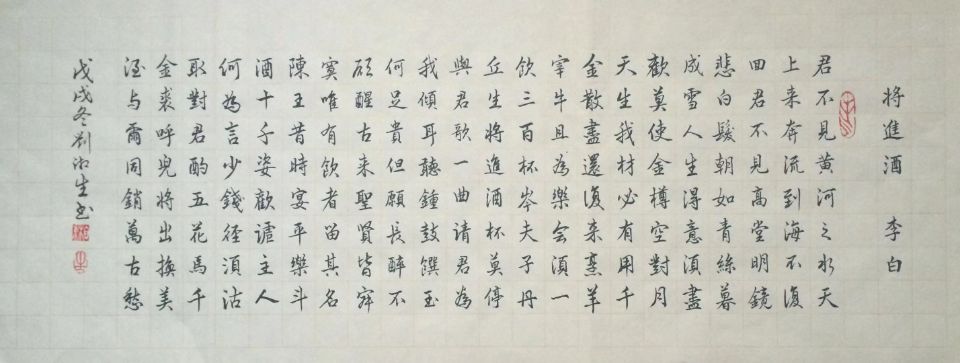 将進酒 李白
君不見黄河之水天
上来奔流到海不復
回君不見高堂明鏡
悲白髮朝如青絲暮
成雪人生得意須盡
歡莫使金樽空對月
天生我材必有用千
金散盡還復来烹羊
宰牛且為樂会須一
飲三百杯岑夫子丹
丘生將進酒杯莫停
與君歌一曲请君為
我傾耳聽鍾鼓饌玉
何足貴但願長醉不
願醒古来聖賢皆寂
寞唯有飲者留其名
陳王昔時宴平樂斗
酒十千姿歡謔主人
何為言少錢径須沽
取對君酌五花馬千
金裘呼兒將出換美
酒与爾同銷萬古愁
戊戌冬劉生书